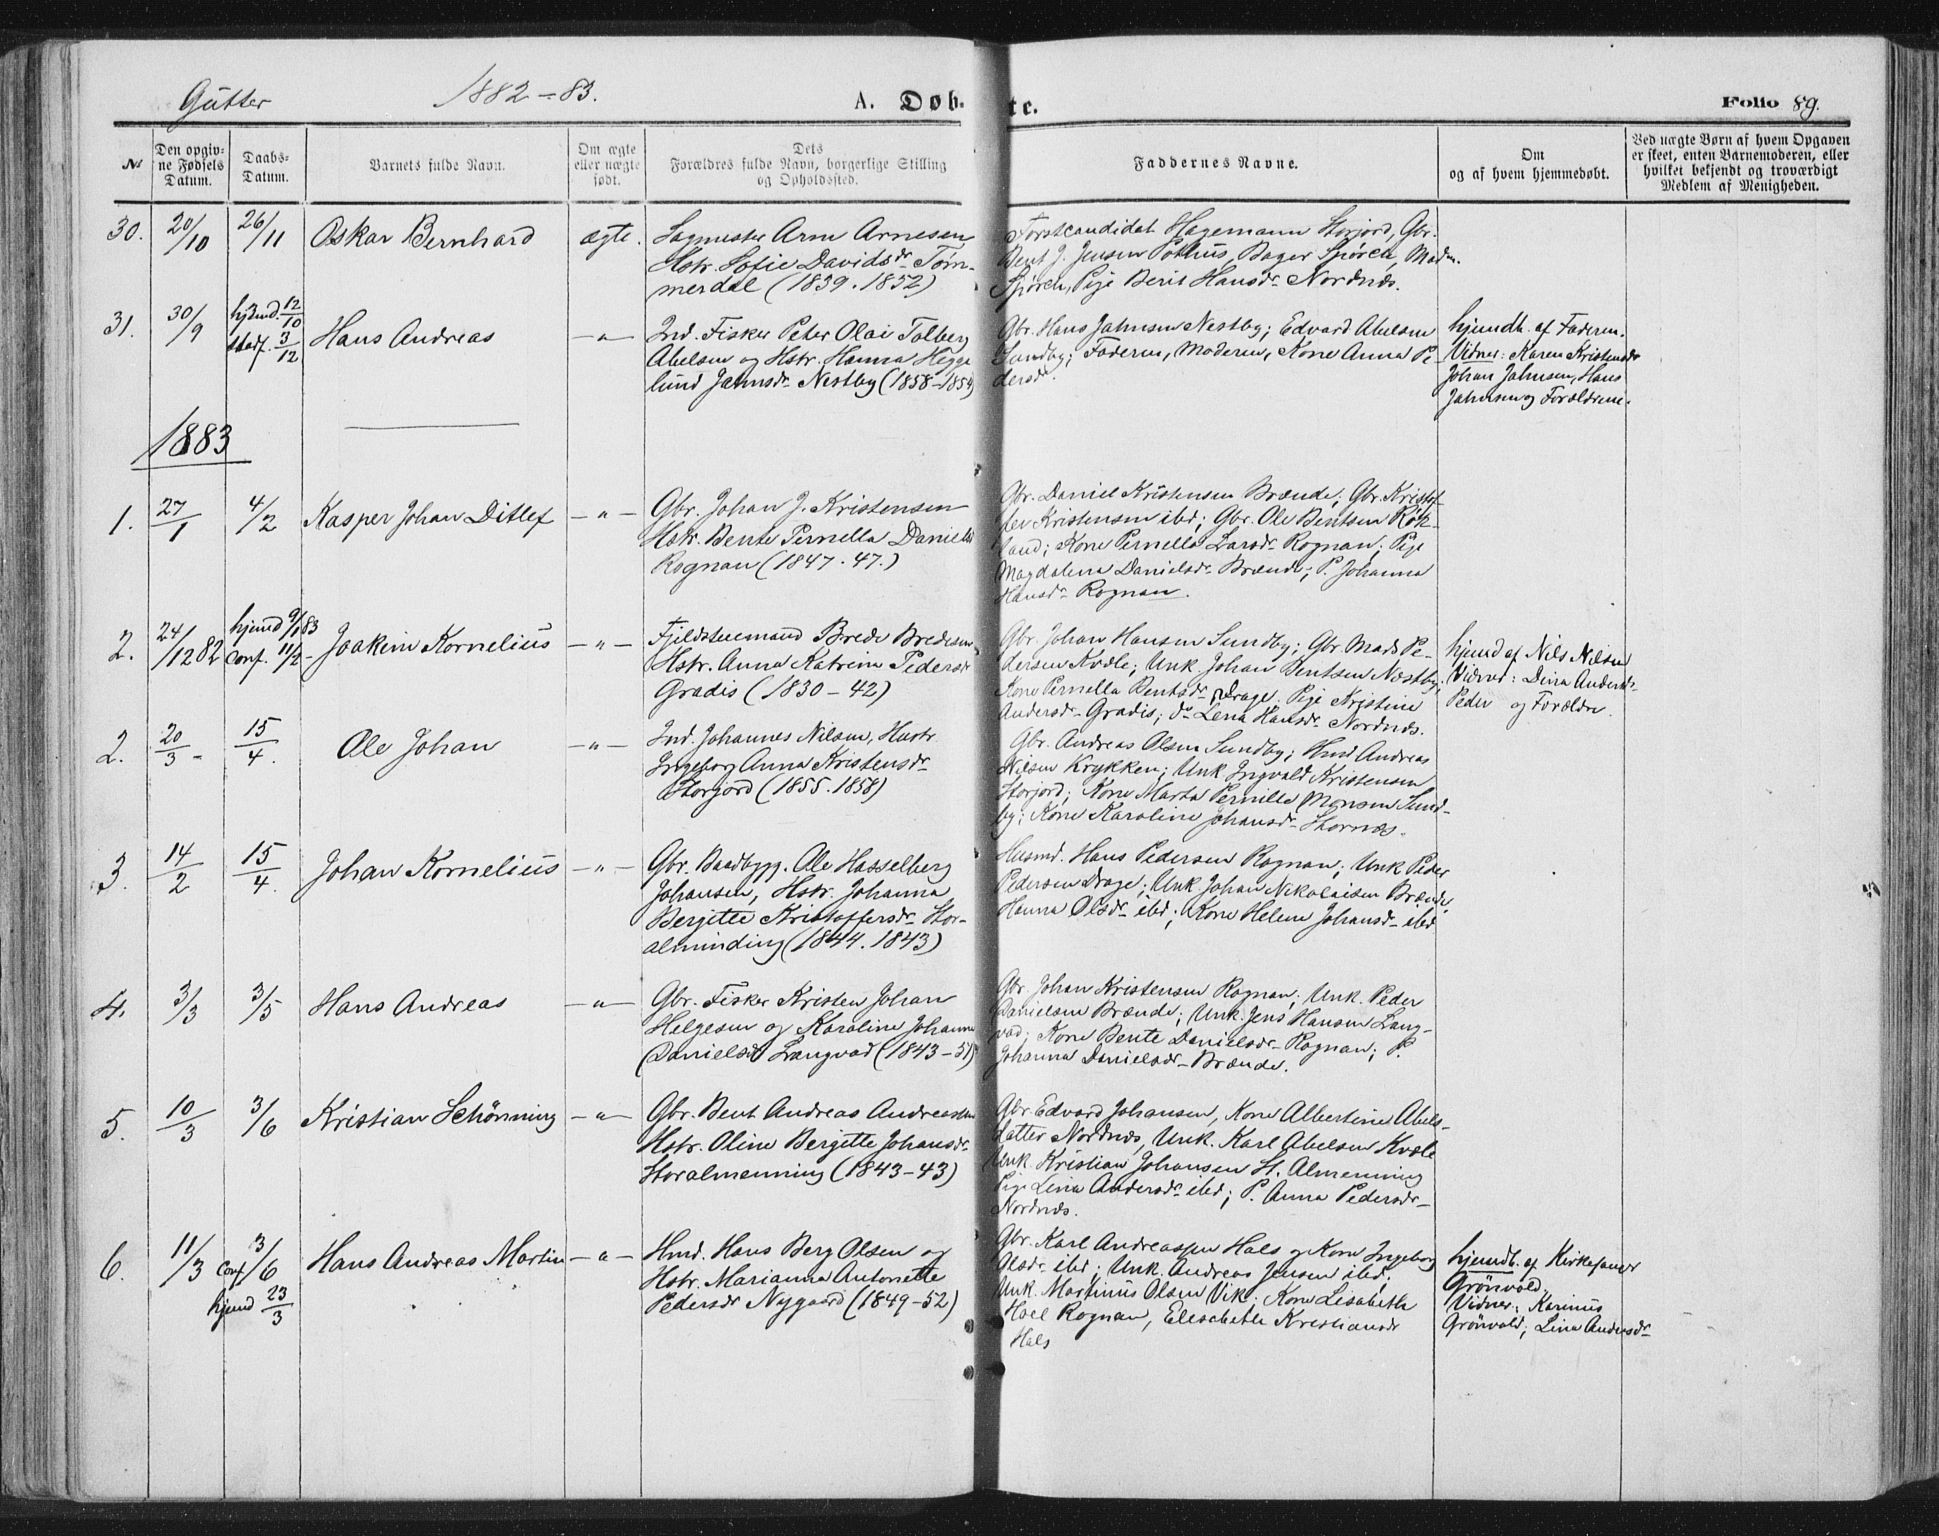 Gutter 1882-83. A. Døbte. Folio 89.
№
Den opgiv-
ne Fødsels
Datum.
Daabs-
Datum.
Barnets fulde Navn.
Om ægte
eller uægte
født.
Dets
Forældres fulde Navn, borgerlige Stilling
og Opholdssted.
Faddernes Navne.
Om
og af hvem hjemmedøbt.
Ved uægte Børn af hvem Opgaven
er skeet, enten Barnemoderen, eller
hvilket bekjendt og troværdigt
Medlem af Menigheden.
30. 20/10 26/11 Oskar Bernhard ægte.
Sagmester Arn Arnesen
Hstr. Sofie Davidsdr Tøm-
merdal (1839. 1852)
Forstcandidat Hagemann Storjord, Gbr.
Bent J. Jensen Pothus, Bager Spörch, Madm.
Spörch, Pige Berit Hansdr Nordnæs.
31. 30/9 hjemd. 12/10
stadf. 3/12
Hans Andreas -"-
Ind. Fisker Peter Olai Tolberg
Abelsen og Hstr. Hanna Hegge
lund Jahnsdr Nestby (1858-1854)
Gbr. Hans Jahnsen Nestby; Edvard Abelsen
Sundby; Faderen, Moderen, Kone Anna Pe-
dersdr.
hjemdb. af Faderen.
Vidner: Karen Kristensdr
Johan Jahnsen, Hans
Jahnsen og Forældrene.
1883
1. 27/1 4/2 Kasper Johan Ditlef -"-
Gbr. Johan J. Kristensen
Hstr. Bente Pernella Danielsdr
Rognan (1847. 47.)
Gbr. Daniel Kristensen Brænde; Gbr. Kristof-
fer Kristensen ibd; Gbr. Ole Bentsen Røk-
land; Kone Pernella Larsdr Rognan; Pige
Magdalena Danielsdr Brænde; P. Johanna
Hansdr Rognan.
2. 24/12 82 hjemd 9/1 83
Conf. 11/2 -
Joakim Kornelius -"-
Fjeldstuemand Brede Bredesen
Hstr. Anna Katrine Pedersdr
Gradis (1830-42)
Gbr. Johan Hansen Sundby; Gbr. Mads Pe-
dersen Kvæle; Unk. Johan Bentsen Næstby;
Kone Pernella Bentsdr Drage, Pige Kristine
Andersdr Gradis; do Lena Hansdr Nordnæs.
hjemd af Nils Nilsen
Vidner: Dina Andersdr
Peder og Forældre.
2. 20/3 - 15/4. Ole Johan -"-
Ind. Johannes Nilsen, Hustr.
Ingeborg Anna Kristensdr
Storjord (1855. 1858)
Gbr. Andreas Olsen Sundby; Hmd Andreas
Nilsen Krykken; Unk Ingvald Kristensen
Storjord; Kone Marta Pernille Monsen Sund-
by; Kone Karoline Johansdr Stornæs.
3. 14/2 15/4. Johan Kornelius -"-
Gbr. Baadbygg. Ole Hasselberg
Johansen, Hstr. Johanna
Bergitte Kristoffersdr Stor-
alminding (1844. 1843)
Husmd. Hans Pedersen Rognan; Unk Peder
Pedersen Drage; Unk. Johan Nikolaisen Brænde,
Hanna Olsdr ibd; Kone Helene Johansdr ibd
4. 3/3 3/5 Hans Andreas -"-
Gbr. Fisker Kristen Johan
Helgesen og Karoline Johanna
Danielsdr Langvad (1843-51)
Gbr. Johan Kristensen Rognan; Unk. Peder
Danielsen Brænde; Unk. Jens Hansen Lang-
vad; Kone Bente Danielsdr Rognan; P.
Johanna Danielsdr Brænde.
5. 10/3 3/6 Kristian Schönning -"-
Gbr. Bent Andreas Andreassen
Hstr. Oline Bergitte Johansdr
Storalmenning (1843-43)
Gbr Edvard Johansen, Kone Albertine Abels-
datter Nordnæs, Unk. Karl Abelsen Kvæle
Unk. Kristian Johansen St. Almenning
Pige Lina Andersdr ibd; P. Anna Pedersdr
Nordnæs.
6. 11/3 Conf 3/6
hjemd 23/3
Hans Andreas Martin -"-
Hmd. Hans Berg Olsen og
Hstr. Marianna Antonette
Pedersdr Nygaard (1849-52)
Gbr. Karl Andreassen Hals og Kone Ingeborg
Olsdr ibd; Unk. Andreas Jensen ibd;
Unk. Martinus Olsen Vik. Kone Lisabeth
Hoel Rognan, Elisabeth Kristiansdr
Hals
hjemdb. af Kirkesanger
Grönvold.
Vidner: Karinus
Grönvold; Lina Andersdr